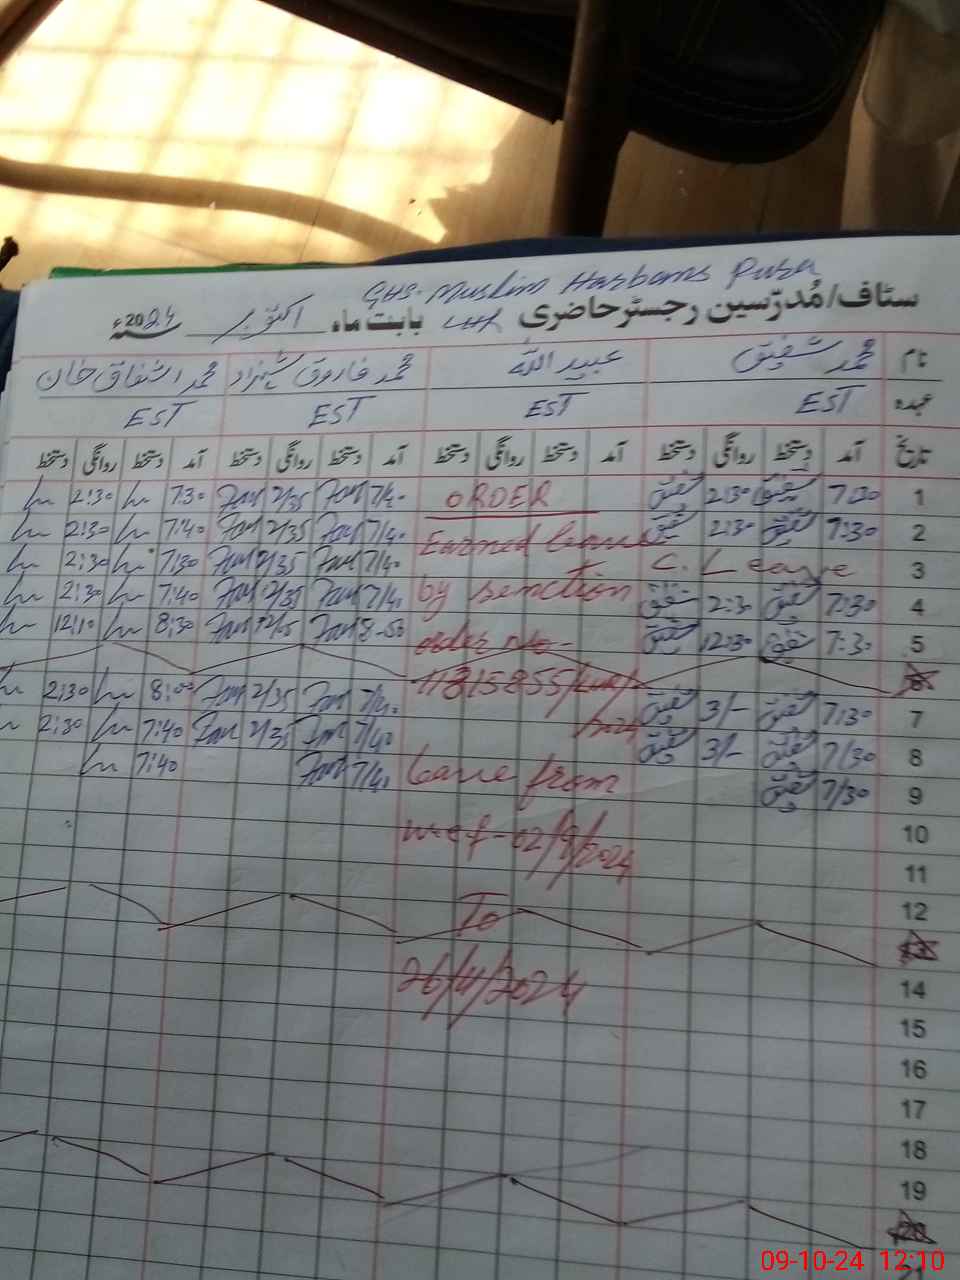 GHS. Muslim Harbans Pura
سٹاف/مُدرّسین رجسٹر حاضری LHR بابت ماہ اکتوبر 2024ء
نام محمد شفیق عبید اللہ محمد فاروق شہزاد محمد اشفاق خان
عہدہ EST EST EST EST
تاریخ آمد دستخط روانگی دستخط آمد دستخط روانگی دستخط آمد دستخط روانگی دستخط آمد دستخط روانگی دستخط
1 7:30 شفیق 2:30 شفیق ORDER 7/40 2/35 7:30 2:30
2 7:30 شفیق 2:30 شفیق Earned leave 7/40 2/35 7:40 2:30
3 C. Leave 7/40 2/35 7:30 2:30
4 7:30 شفیق 2:30 شفیق by senction 7/40 2/35 7:40 2:30
5 7:30 شفیق 12:30 شفیق order no- 8-50 8:30 12:10
6 11815855/
7 7:30 شفیق 3/- شفیق 2024 7/40 2/35 8:00 2:30
8 7/30 شفیق 3/- شفیق 7/40 2/35 7:40 2:30
9 7/30 شفیق Leave from 7/40 7:40
10 w-e-f-02/9/2024
11
12 To
13
14 26/11/2024
15
16
17
18
19
20
21
09-10-24 12:10